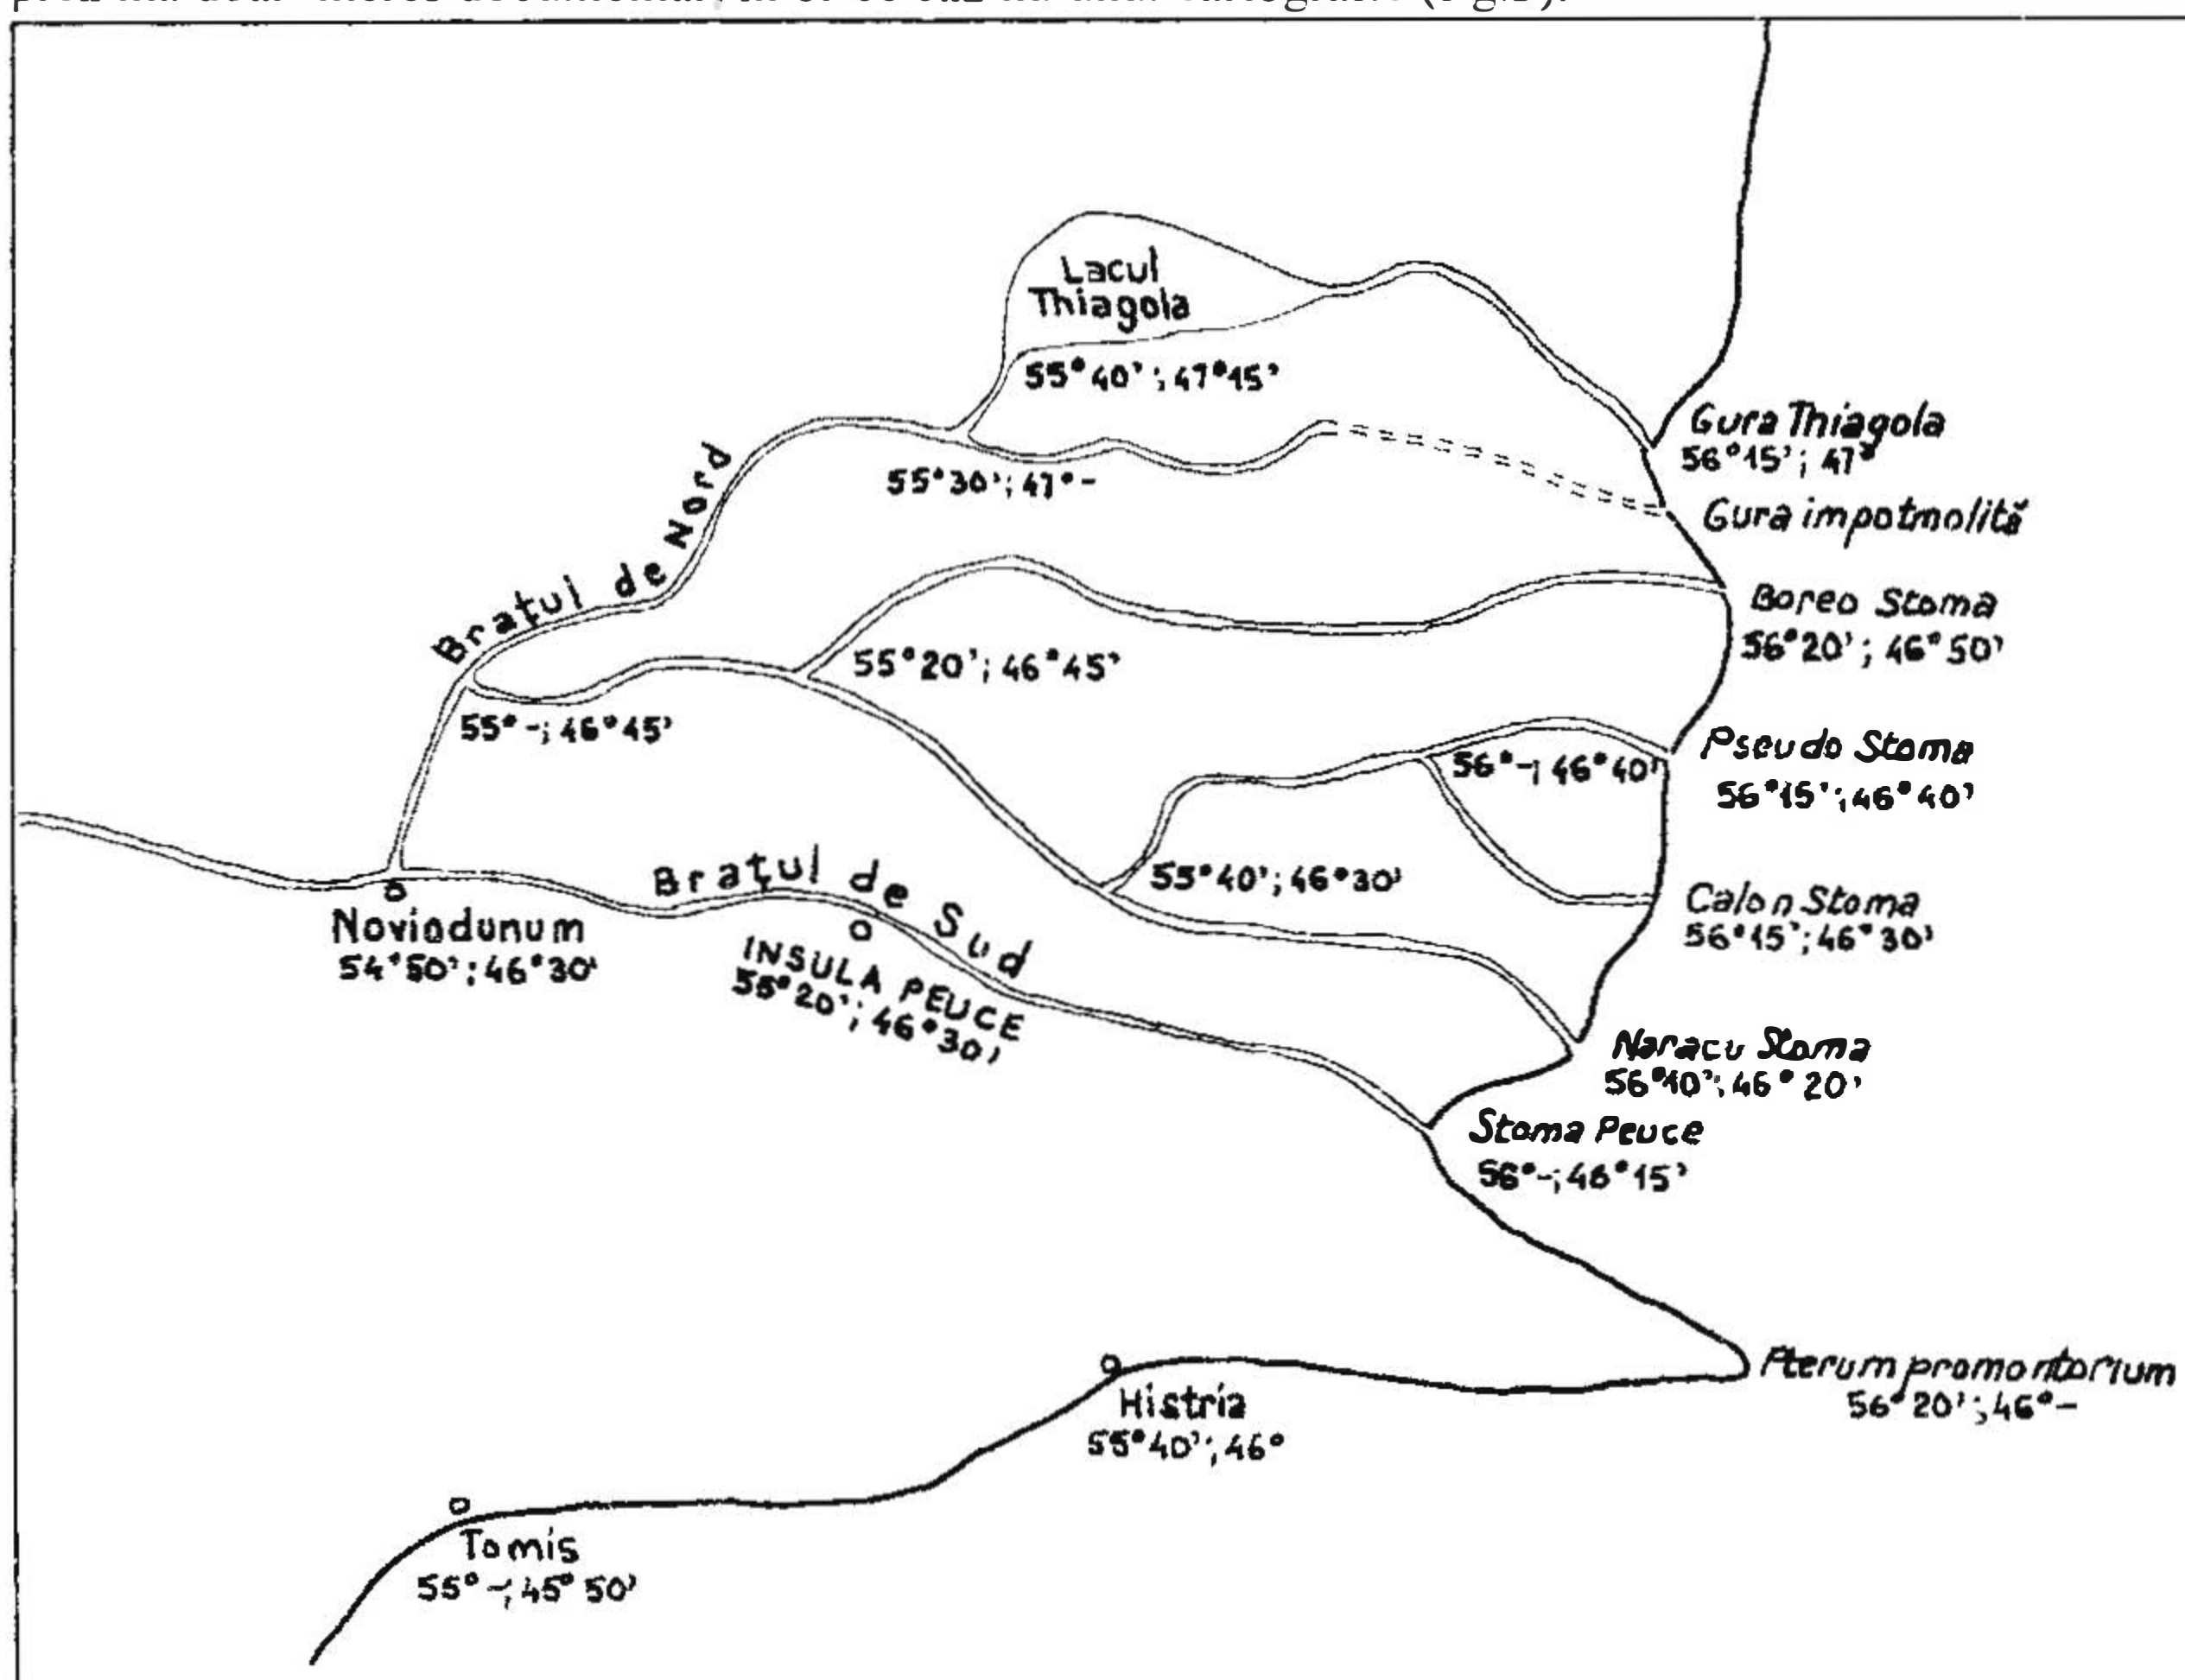 Lacul
Thiagola
55° 40'; 47° 15'
Gura Thiagola
56° 15'; 47°
Brațul de Nord
55° 30'; 47° -
Gura impotmolită
Boreo Stoma
56° 20'; 46° 50'
55° 20'; 46° 45'
55° -; 46° 45'
Pseudo Stoma
56° 15'; 46° 40'
56° -; 46° 40'
Brațul de Sud
55° 40'; 46° 30'
Calon Stoma
56° 15'; 46° 30'
Noviodunum
54° 50'; 46° 30'
INSULA PEUCE
55° 20'; 46° 30'
Naracu Stoma
56° 10'; 46° 20'
Stoma Peuce
56° -; 46° 15'
Pterum promontorium
56° 20'; 46° -
Histria
55° 40'; 46°
Tomis
55° -; 45° 50'